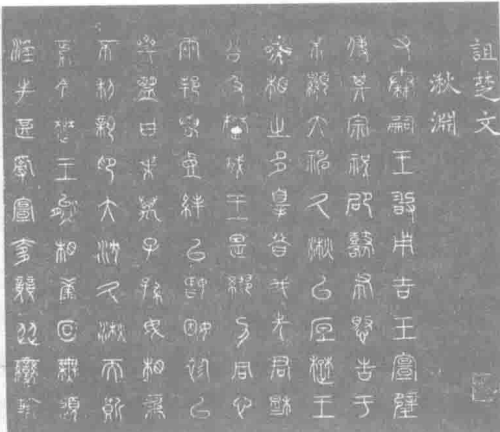 詛楚文
湫淵
又秦嗣王敢用吉玉宣璧
使其宗祝邵鼛布憝告于
不顯大神久湫以底楚王
熊相之多辠昔我先君穆
公及楚成王是繆力同心
兩邦若壹絆以婚姻袗以
齊盟曰枼萬子孫毋相為
不利親卬大沈久湫而質
焉今楚王熊相康回無道
淫失甚亂宣侈競從變輸